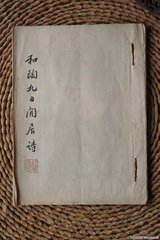 和陶九日閒居詩